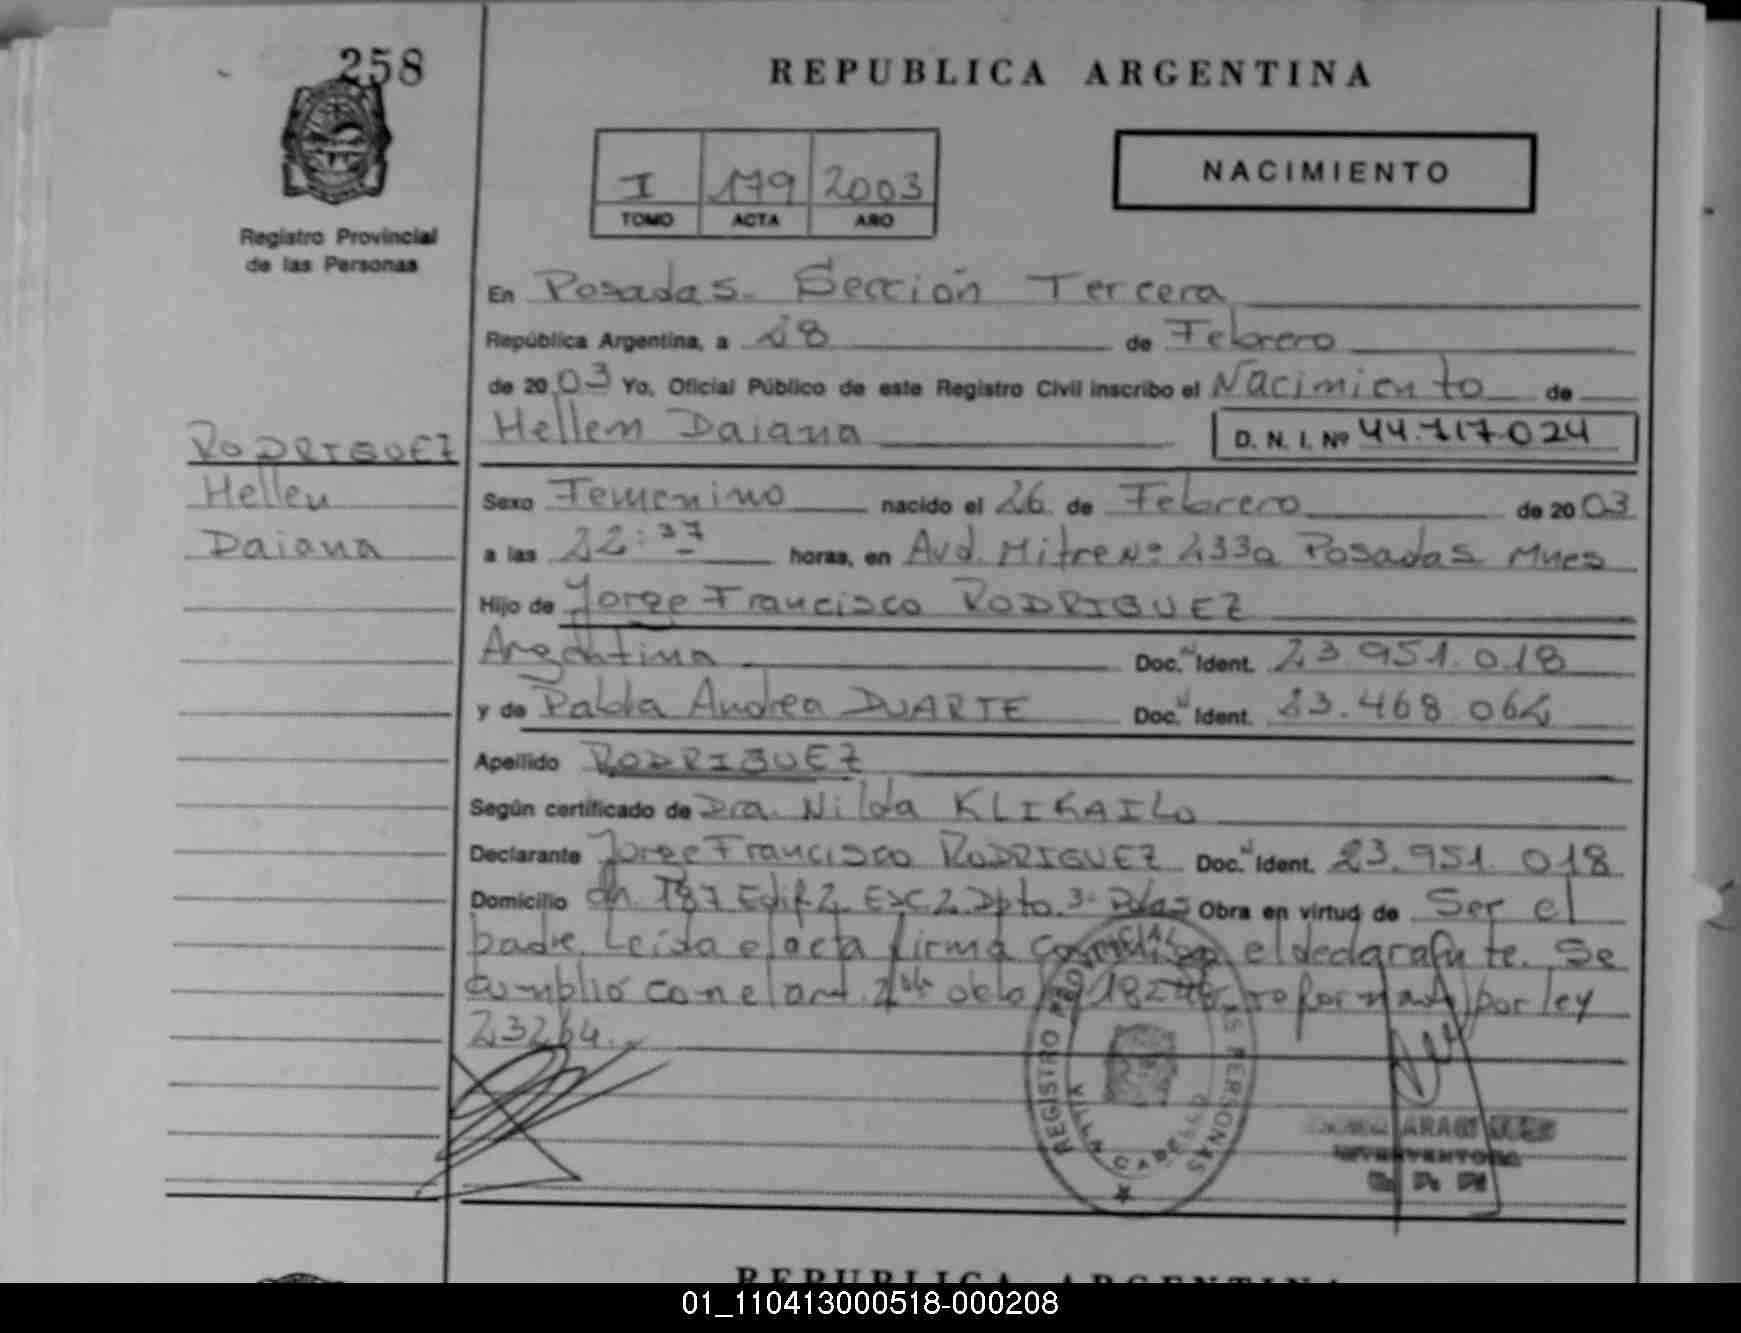 258
REPUBLICA ARGENTINA
I 179 2003
TOMO ACTA AÑO
NACIMIENTO
Registro Provincial
de las Personas
En Posadas. Sección Tercera
República Argentina, a 28 de Febrero
de 2003 Yo, Oficial Público de este Registro Civil inscribo el Nacimiento de
Hellen Daiana D. N. I. Nº 44.717.024
RODRIGUEZ
Hellen
Daiana
Sexo Femenino nacido el 26 de Febrero de 2003
a las 22:37 horas, en Avd. Mitre Nº 2330 Posadas Mnes
Hijo de Jorge Francisco RODRIGUEZ
Argentina Doc. Ident. 23.951.018
y de Andrea DUARTE Doc. Ident. 23.468.064
Apellido RODRIGUEZ
Según certificado de Dra. Nilda KLIKAILO
Declarante Jorge Francisco RODRIGUEZ Doc. Ident. 23.951.018
Domicilio Ch. 187 Edif 2 Esc 2 Dpto. 3- Pdas Obra en virtud de Ser el
padre. Leida el acta firma el declarante. Se
cumplió con el art. de la ley 18248 reformado por ley
23264.
REGISTRO PROVINCIAL DE LAS PERSONAS
REPUBLICA ARGENTINA
01_110413000518-000208